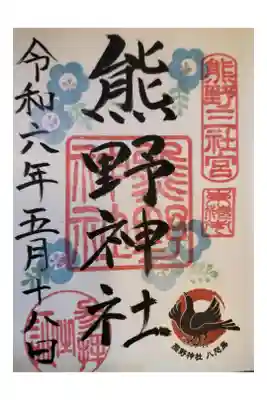 熊野三社宮
熊野神社
令和六年五月十八日
熊野神社 八咫烏